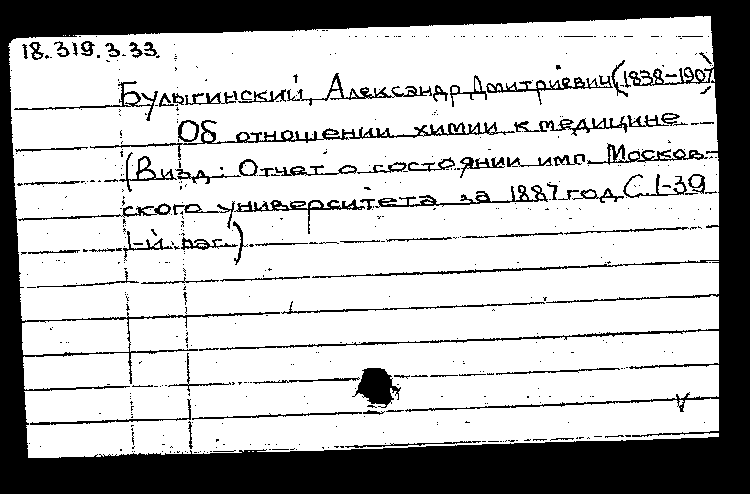 18.319.3.33.
Булыгинский, Александр Дмитриевич (1838-1907)
Об отношении химии к медицине
(В изд.: Отчет о состоянии имп. Москов-
ского университета за 1887 год С. 1-39
1-й паг.)
V